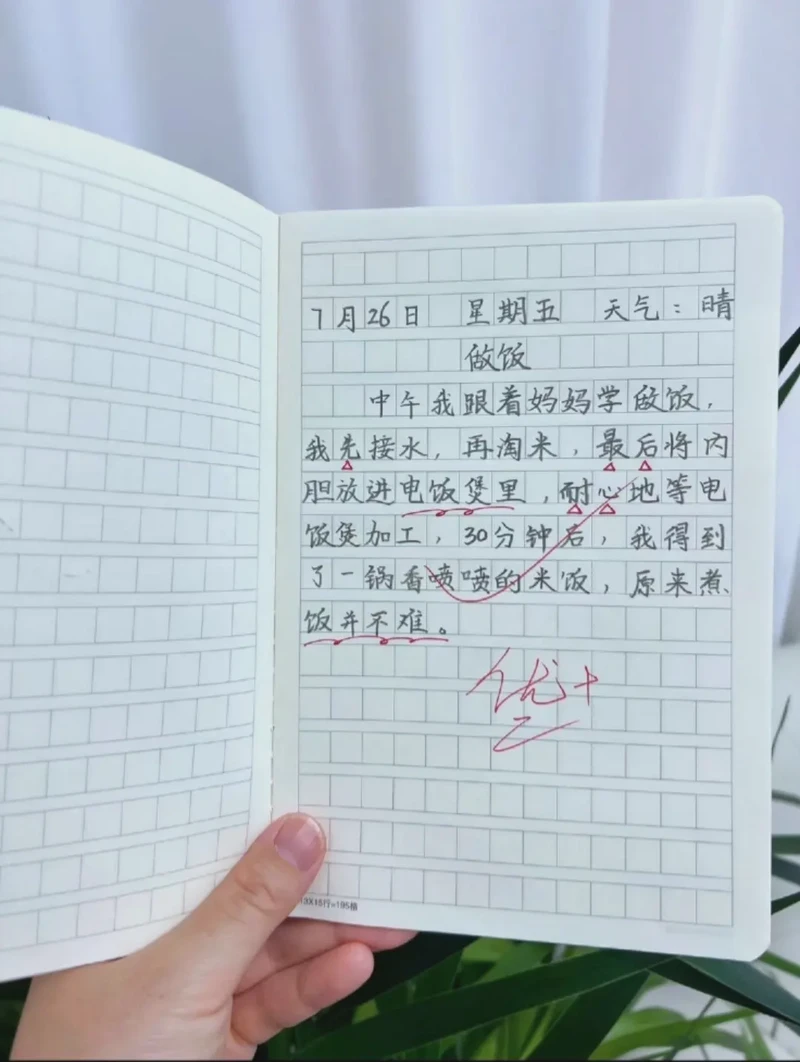 7月26日 星期五 天气：晴
做饭
中午我跟着妈妈学做饭，
我先接水，再淘米，最后将内
胆放进电饭煲里，耐心地等电
饭煲加工，30分钟后，我得到
了一锅香喷喷的米饭，原来煮
饭并不难。
优+
13X15行=195格